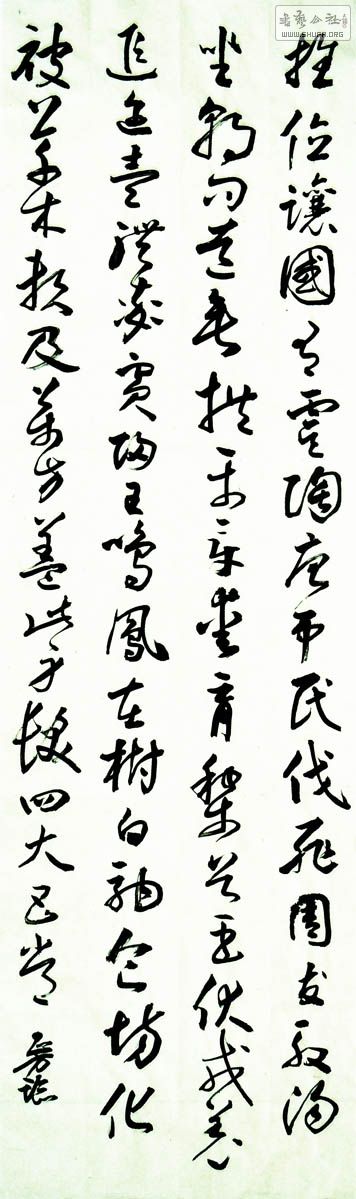 推位讓國有虞陶唐吊民伐罪周發殷湯
坐朝問道垂拱平章愛育黎首臣伏戎羌
遐邇壹體率賓歸王鳴鳳在樹白駒食場化
被草木賴及萬方蓋此身髮四大五常
書藝公社
WWW.SHUFA.ORG